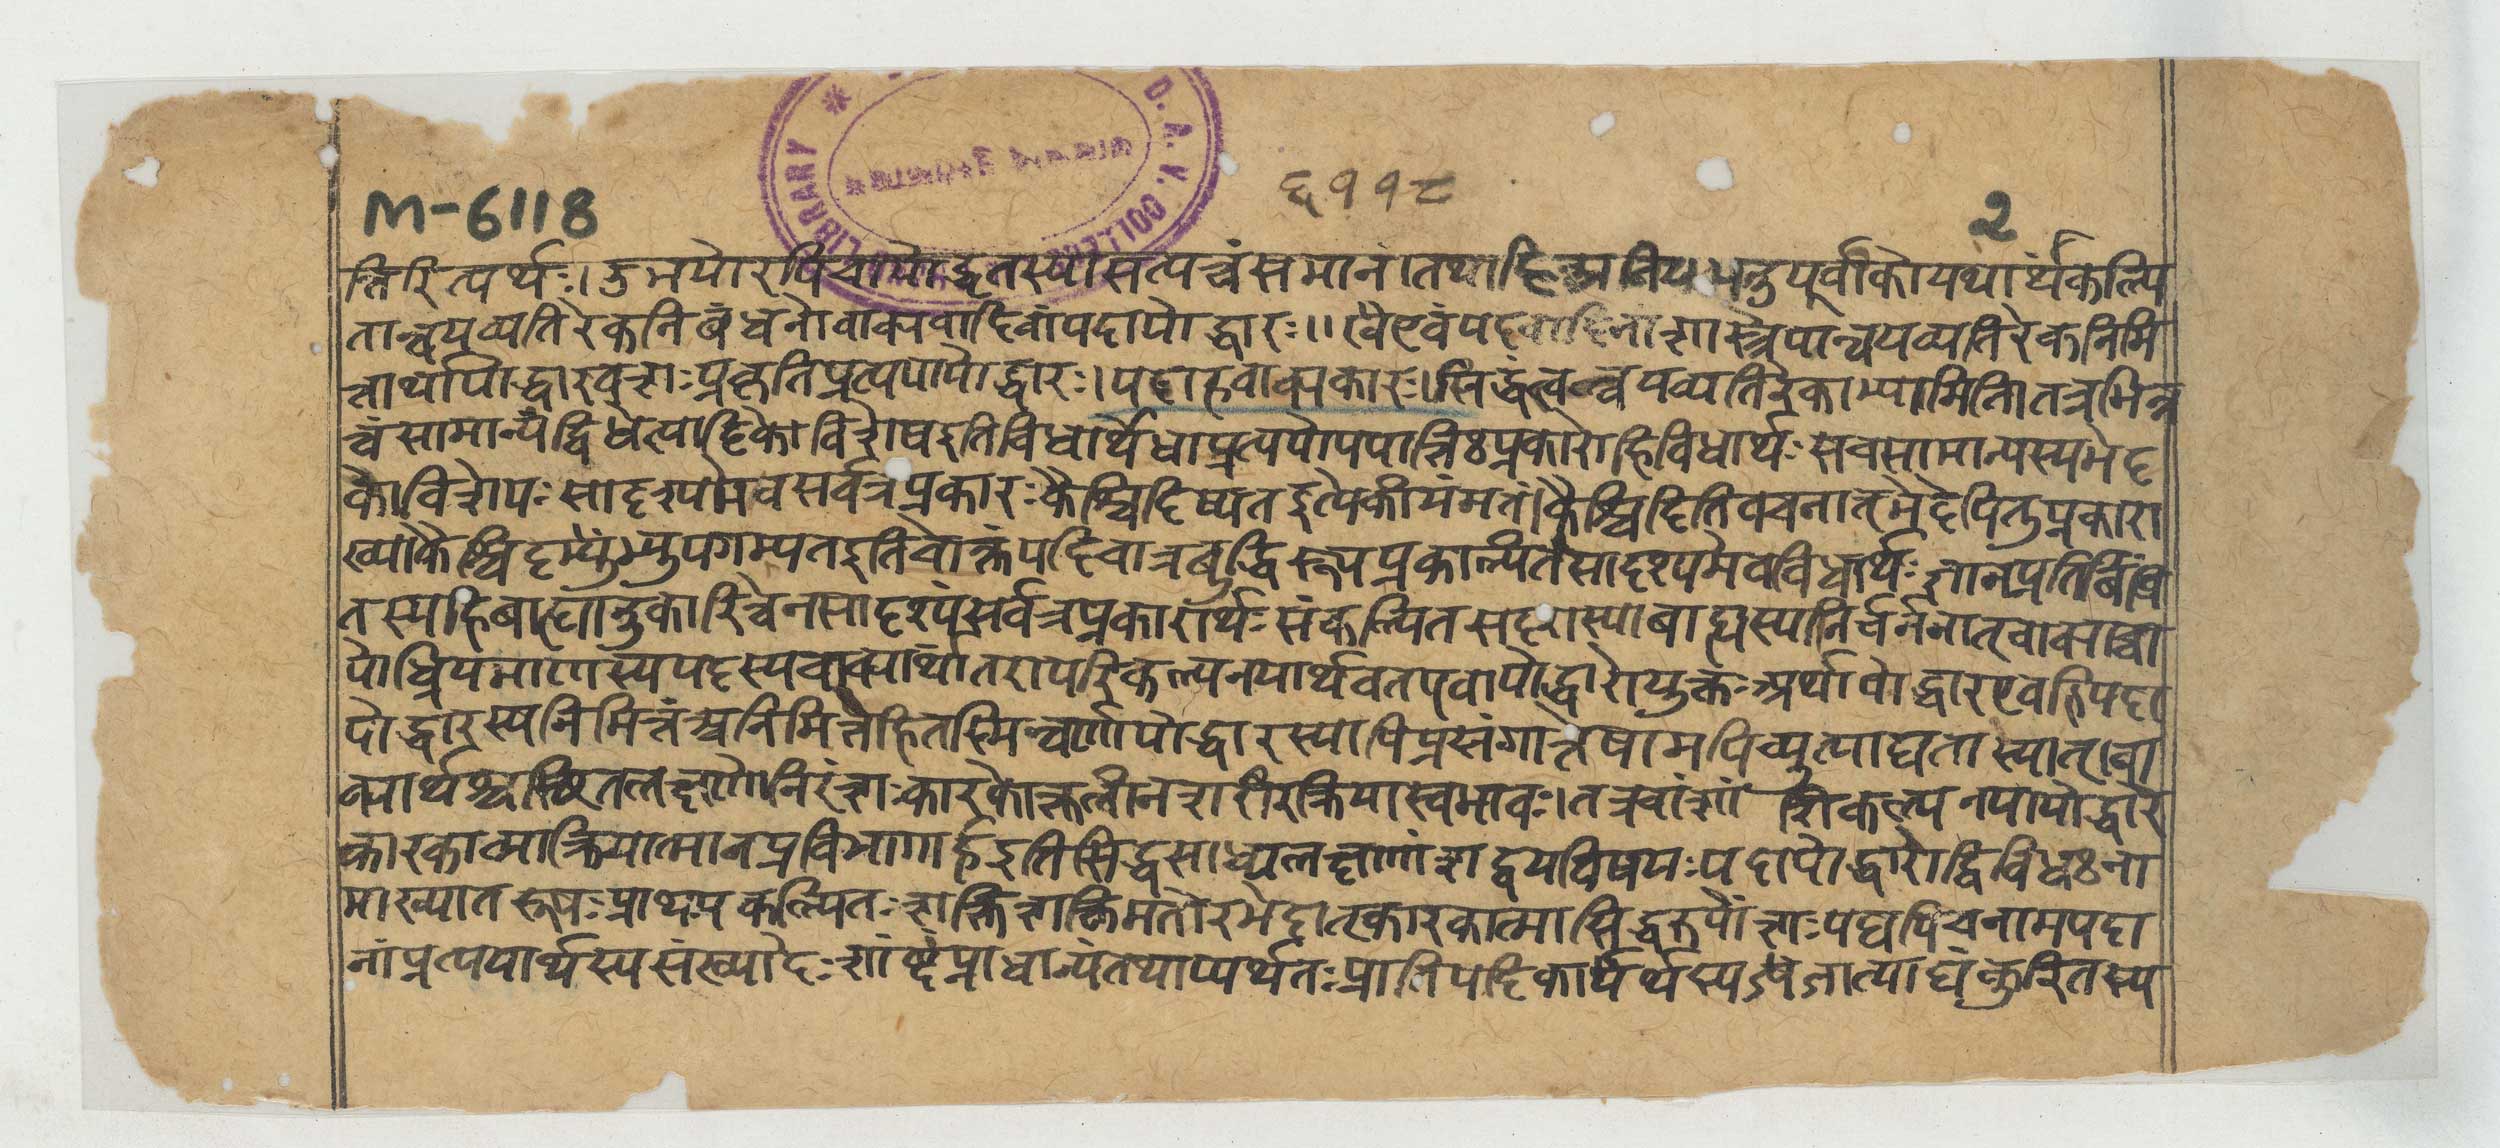 LIBRARY * D. A. V. COLLEGE
M-6118
६११८
2
त्तिरित्यर्थः। उभयोरपिचापोद्धृतस्यासत्यत्वंसमानं। तथाहि पूर्वीकोयथार्थकल्पि
तान्वयव्यतिरेकनिबंधनोवाक्यवादिनांपदापोद्धारः।। एवंपदवादिनांशास्त्रेयान्वयव्यतिरेकनिमि
त्तार्थापोद्धारवशः प्रकृतिप्रत्ययापोद्धारः। यदाहवाक्यकारः। सिद्धंत्वन्वयव्यतिरेकाभ्यामिति। तत्रभिन्न
त्वंसामान्यंद्विधेत्यादिकोविशेषइतिविधार्थेधाप्रत्ययोपपत्तिःप्रकारोहिविधार्थः सचसामान्यस्यभेद
कोविशेषः सादृश्यमेवसर्वत्रप्रकारः कैश्चिदिष्यतइत्येकीयंमतं। कैश्चिदितिवचनात्भेदेपितुप्रकारा
ख्याकैश्चिदभ्युपगम्यतइतिचोक्तंयदिवात्रबुद्धिरूपप्रकल्पितंसादृश्यमेवविधार्थः ज्ञानप्रतिबिंबि
तस्यहिबाह्यानुकारित्वेनसादृश्यंसर्वत्रप्रकारार्थः संकल्पितसदृशस्याबाह्यस्यानिर्वर्त्तनात्वाक्याच्चा
पोध्रियमाणस्यपदस्यवाक्यार्थांतरापरिकल्पनयार्थवतएवापोद्धारोयुक्तः अर्थापोद्धारएवहिपदा
पोद्धारस्यनिमित्तंअनिमित्तेहितस्मिन्वर्णापोद्धारस्यापिप्रसंगात्तेषामपिव्युत्पाद्यतास्यात्। वा
क्यार्थश्च लक्षणोनिरंशः कारकोत्कलीनशरीरक्रियास्वभावः। तत्रचांशांशिकल्पनयापोद्धारे
कारकात्माक्रियात्माचप्रविभागार्हइतिसिद्धसाध्यलक्षणांशद्वयविषयः पदापोद्धारोद्विविधःना
माख्यातरूपः प्राधान्यकल्पितः शक्तिशक्तिमतोरभेदात्कारकात्मासिद्धरूपोंशः यद्यपिचनामपदा
नांप्रत्ययार्थस्यसंख्यादेः शाब्दंप्राधान्यंतथाप्यर्थतः प्रातिपदिकार्थस्यद्रव्यस्यजात्याद्यंकुरितस्य